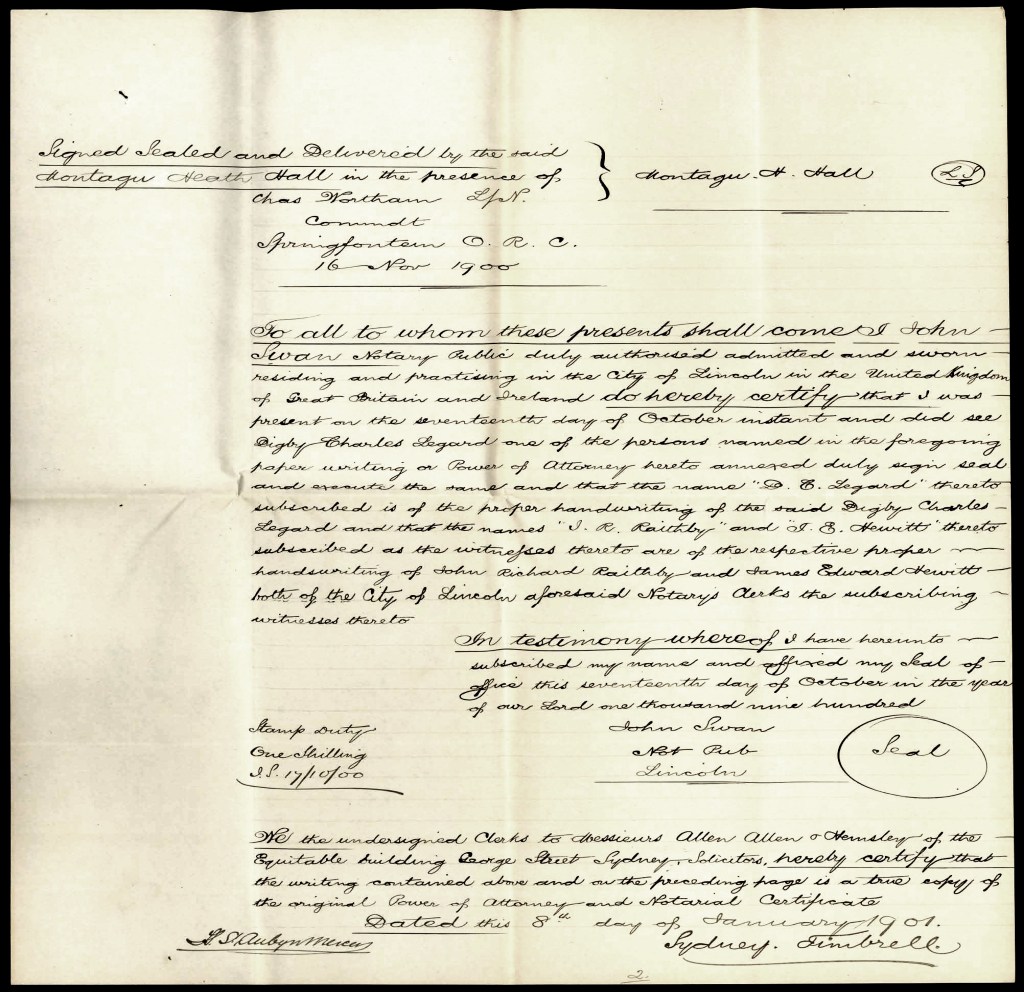 Signed Sealed and Delivered by the said
Montagu Heath Hall in the presence of } Montagu. H. Hall LS
Chas Wortham
Commdt
Springfontein O. R. C.
16 Nov 1900
To all to whom these presents shall come I John
Swan Notary Public duly authorised admitted and sworn
residing and practising in the City of Lincoln in the United Kingdom
of Great Britain and Ireland do hereby certify that I was
present on the seventeenth day of October instant and did see
Digby Charles Legard one of the persons named in the foregoing
paper writing or Power of Attorney hereto annexed duly sign seal
and execute the same and that the name "D. C. Legard" thereto
subscribed is of the proper handwriting of the said Digby Charles
Legard and that the names "J. R. Raithby" and "J. E. Hewitt" thereto
subscribed as the witnesses thereto are of the respective proper
handswriting of John Richard Raithby and James Edward Hewitt
both of the City of Lincoln aforesaid Notarys Clerks the subscribing
witnesses thereto
In testimony whereof I have hereunto
subscribed my name and affixed my Seal of
office this seventeenth day of October in the year
of our Lord one thousand nine hundred
Stamp Duty John Swan
One Shilling Not Pub Seal
J.S. 17/10/00 Lincoln
We the undersigned Clerks to Messieurs Allen Allen & Hemsley of the
Equitable building George Street Sydney, Solicitors, hereby certify that
the writing contained above and on the preceding page is a true copy of
the original Power of Attorney and Notarial Certificate
Dated this 8th day of January 1901.
St Aubyn Sydney. Timbrell.
2.